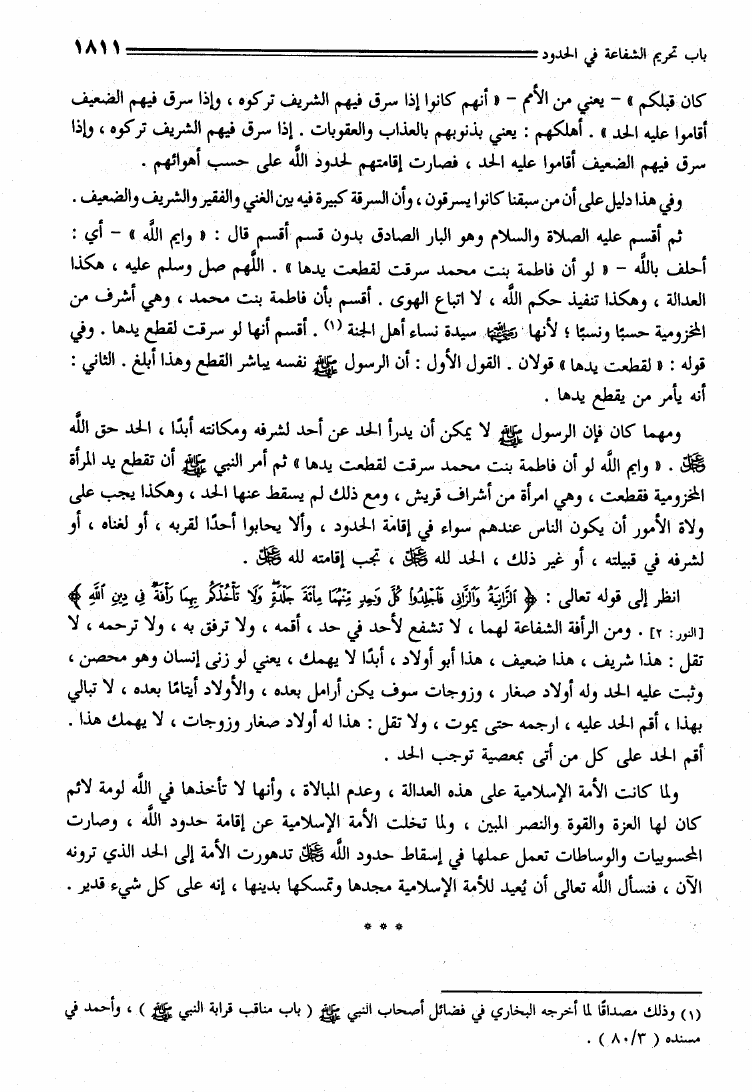 باب تحريم الشفاعة في الحدود ١٨١١
كان قبلكم » – يعني من الأمم – « أنهم كانوا إذا سرق فيهم الشريف تركوه ، وإذا سرق فيهم الضعيف
أقاموا عليه الحد » . أهلكهم : يعني بذنوبهم بالعذاب والعقوبات . إذا سرق فيهم الشريف تركوه ، وإذا
سرق فيهم الضعيف أقاموا عليه الحد ، فصارت إقامتهم لحدود اللَّه على حسب أهوائهم .
وفي هذا دليل على أن من سبقنا كانوا يسرقون ، وأن السرقة كبيرة فيه بين الغني والفقير والشريف والضعيف .
ثم أقسم عليه الصلاة والسلام وهو البار الصادق بدون قسم أقسم قال : « وايم اللَّه » – أي :
أحلف باللَّه – « لو أن فاطمة بنت محمد سرقت لقطعت يدها » . اللَّهم صل وسلم عليه ، هكذا
العدالة ، وهكذا تنفيذ حكم اللَّه ، لا اتباع الهوى . أقسم بأن فاطمة بنت محمد ، وهي أشرف من
المخزومية حسبًا ونسبًا ؛ لأنها رضي الله عنها سيدة نساء أهل الجنة (١) . أقسم أنها لو سرقت لقطع يدها . وفي
قوله : « لقطعت يدها » قولان . القول الأول : أن الرسول ﷺ نفسه يباشر القطع وهذا أبلغ . الثاني :
أنه يأمر من يقطع يدها .
ومهما كان فإن الرسول ﷺ لا يمكن أن يدرأ الحد عن أحد لشرفه ومكانته أبدًا ، الحد حق اللَّه
عز وجل . « وايم اللَّه لو أن فاطمة بنت محمد سرقت لقطعت يدها » ثم أمر النبي ﷺ أن تقطع يد المرأة
المخزومية فقطعت ، وهي امرأة من أشراف قريش ، ومع ذلك لم يسقط عنها الحد ، وهكذا يجب على
ولاة الأمور أن يكون الناس عندهم سواء في إقامة الحدود ، وألا يحابوا أحدًا لقربه ، أو لغناه ، أو
لشرفه في قبيلته ، أو غير ذلك ، الحد لله عز وجل ، تجب إقامته لله عز وجل .
انظر إلى قوله تعالى : ﴿ ٱلزَّانِيَةُ وَٱلزَّانِي فَٱجْلِدُوا۟ كُلَّ وَٰحِدٍ مِّنْهُمَا مِا۟ئَةَ جَلْدَةٍ وَلَا تَأْخُذْكُم بِهِمَا رَأْفَةٌ فِى دِينِ ٱللَّهِ ﴾
[النور: ٢] . ومن الرأفة الشفاعة لهما ، لا تشفع لأحد في حد ، أقمه ، ولا ترفق به ، ولا ترحمه ، لا
تقل : هذا شريف ، هذا ضعيف ، هذا أبو أولاد ، أبدًا لا يهمك ، يعني لو زنى إنسان وهو محصن ،
وثبت عليه الحد وله أولاد صغار ، وزوجات سوف يكن أرامل بعده ، والأولاد أيتامًا بعده ، لا تبالي
بهذا ، أقم الحد عليه ، ارجمه حتى يموت ، ولا تقل : هذا له أولاد صغار وزوجات ، لا يهمك هذا .
أقم الحد على كل من أتى بمعصية توجب الحد .
ولما كانت الأمة الإسلامية على هذه العدالة ، وعدم المبالاة ، وأنها لا تأخذها في اللَّه لومة لائم
كان لها العزة والقوة والنصر المبين ، ولما تخلت الأمة الإسلامية عن إقامة حدود اللَّه ، وصارت
المحسوبيات والوساطات تعمل عملها في إسقاط حدود اللَّه عز وجل تدهورت الأمة إلى الحد الذي ترونه
الآن ، فنسأل اللَّه تعالى أن يُعيد للأمة الإسلامية مجدها وتمسكها بدينها ، إنه على كل شيء قدير .
* * *
(١) وذلك مصداقًا لما أخرجه البخاري في فضائل أصحاب النبي ﷺ ( باب مناقب قرابة النبي ﷺ ) ، وأحمد في
مسنده ( ٨٠/٣ ) .